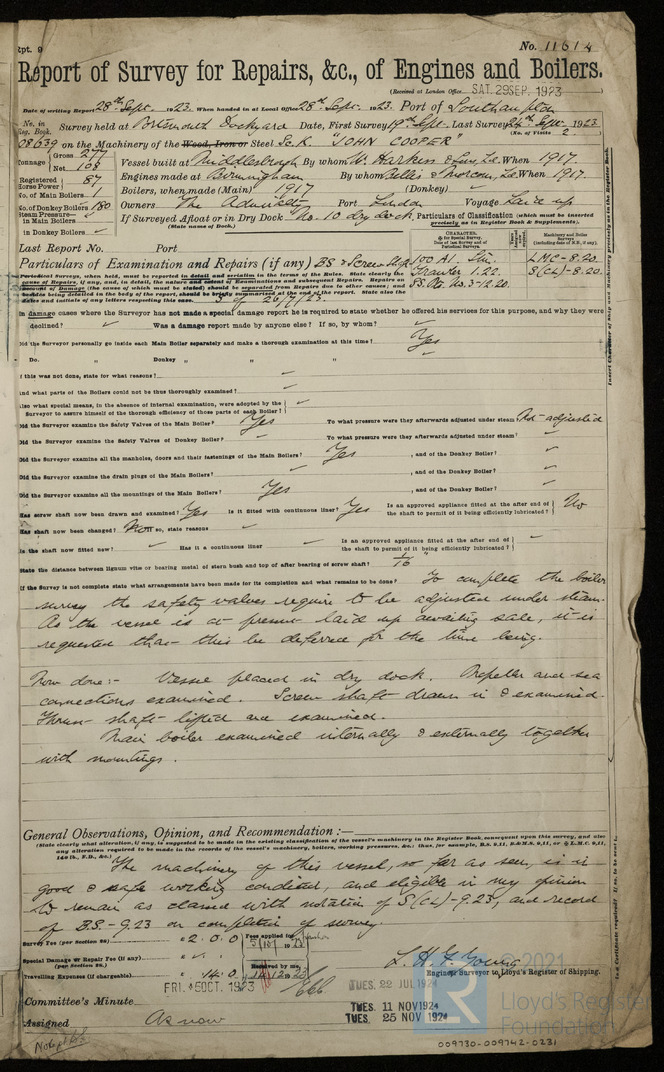 Rpt. 9
No. 11614
Report of Survey for Repairs, &c., of Engines and Boilers.
(Received at London Office SAT. 29 SEP. 1923)
Date of writing Report 28th Sept. 1923. When handed in at Local Office 28th Sept. 1923. Port of Southampton
No. in Reg. Book. Survey held at Portsmouth Dockyard Date, First Survey 19th Sept. Last Survey 24th Sept. 1923
(No. of Visits 2)
08639 on the Machinery of the Wood, Iron or Steel Sc. K. "JOHN COOPER"
Tonnage Gross 277 Net 108
Vessel built at Middlesbrough By whom W. Harkess & Sons, Ld. When 1917.
Registered Horse Power 87 Engines made at Birmingham By whom Bellis & Morcom, Ld. When 1917.
No. of Main Boilers 1 Boilers, when made (Main) 1917 (Donkey) ✓
No. of Donkey Boilers ✓ Owners The Admiralty Port London Voyage Laid up
Steam Pressure in Main Boilers 180
in Donkey Boilers ✓
If Surveyed Afloat or in Dry Dock No. 10 dry dock
(State name of Dock.)
Particulars of Classification (which must be inserted precisely as in Register Book & Supplements).
Last Report No. Port
Particulars of Examination and Repairs (if any) BS & Screw Shaft
100 A1
Trawler 1.22.
LMC-8.20.
S(CL)-8.20.
In damage cases where the Surveyor has not made a special damage report he is required to state whether he offered his services for this purpose, and why they were
declined? Was a damage report made by anyone else? If so, by whom?
Did the Surveyor personally go inside each Main Boiler separately and make a thorough examination at this time? Yes
Do. " Donkey " " "
If this was not done, state for what reasons?
And what parts of the Boilers could not be thus thoroughly examined?
Also what special means, in the absence of internal examination, were adopted by the
Surveyor to assure himself of the thorough efficiency of those parts of each Boiler?
Did the Surveyor examine the Safety Valves of the Main Boiler? Yes To what pressure were they afterwards adjusted under steam Not adjusted
Did the Surveyor examine the Safety Valves of Donkey Boiler? To what pressure were they afterwards adjusted under steam?
Did the Surveyor examine all the manholes, doors and their fastenings of the Main Boilers? Yes , and of the Donkey Boiler?
Did the Surveyor examine the drain plugs of the Main Boilers? , and of the Donkey Boiler?
Did the Surveyor examine all the mountings of the Main Boilers? Yes , and of the Donkey Boiler?
Has screw shaft now been drawn and examined? Yes Is it fitted with continuous liner? Yes Is an approved appliance fitted at the after end of the shaft to permit of it being efficiently lubricated? No
Has shaft now been changed? No If so, state reasons
Is the shaft now fitted new? Has it a continuous liner Is an approved appliance fitted at the after end of the shaft to permit of it being efficiently lubricated?
State the distance between lignum vitæ or bearing metal of stern bush and top of after bearing of screw shaft? 1/16"
If the Survey is not complete state what arrangements have been made for its completion and what remains to be done? To complete the boiler
survey the safety valves require to be adjusted under steam.
As the vessel is at present laid up awaiting sale, it is
requested that this be deferred for the time being.
Now done:- Vessel placed in dry dock. Propeller and sea
connections examined. Screw shaft drawn in & examined.
Thrust shaft lifted and examined.
Main boiler examined internally & externally together
with mountings.
General Observations, Opinion, and Recommendation:—
(State clearly what alteration, if any, is suggested to be made in the existing classification of the vessel's machinery in the Register Book, consequent upon this survey, and also
any alteration required to be made in the records of the vessel's machinery, boilers, working pressures, &c.: thus, for example, B.S. 9,11, B&M.S. 9,11, or L.M.C. 9,11,
140 lb., F.D., &c.)
The machinery of this vessel, so far as seen, is in
good & safe working condition, and eligible in my opinion
to remain as classed with notation of S(CL)-9.23, and record
of B.S.-9.23 on completion of survey.
Survey Fee (per Section 28) 2.0.0 Fees applied for
Special Damage or Repair Fee (if any) (per Section 28.) Received by me,
Travelling Expenses (if chargeable) 14.0
L. H. F. Young
Engineer Surveyor to Lloyd's Register of Shipping.
FRI. 5 OCT. 1923
TUES. 22 JUL 1924
Committee's Minute
TUES. 11 NOV 1924
TUES. 25 NOV 1924
Assigned As now
© 2021
LR
Lloyd's Register
Foundation
009730-009742-0231